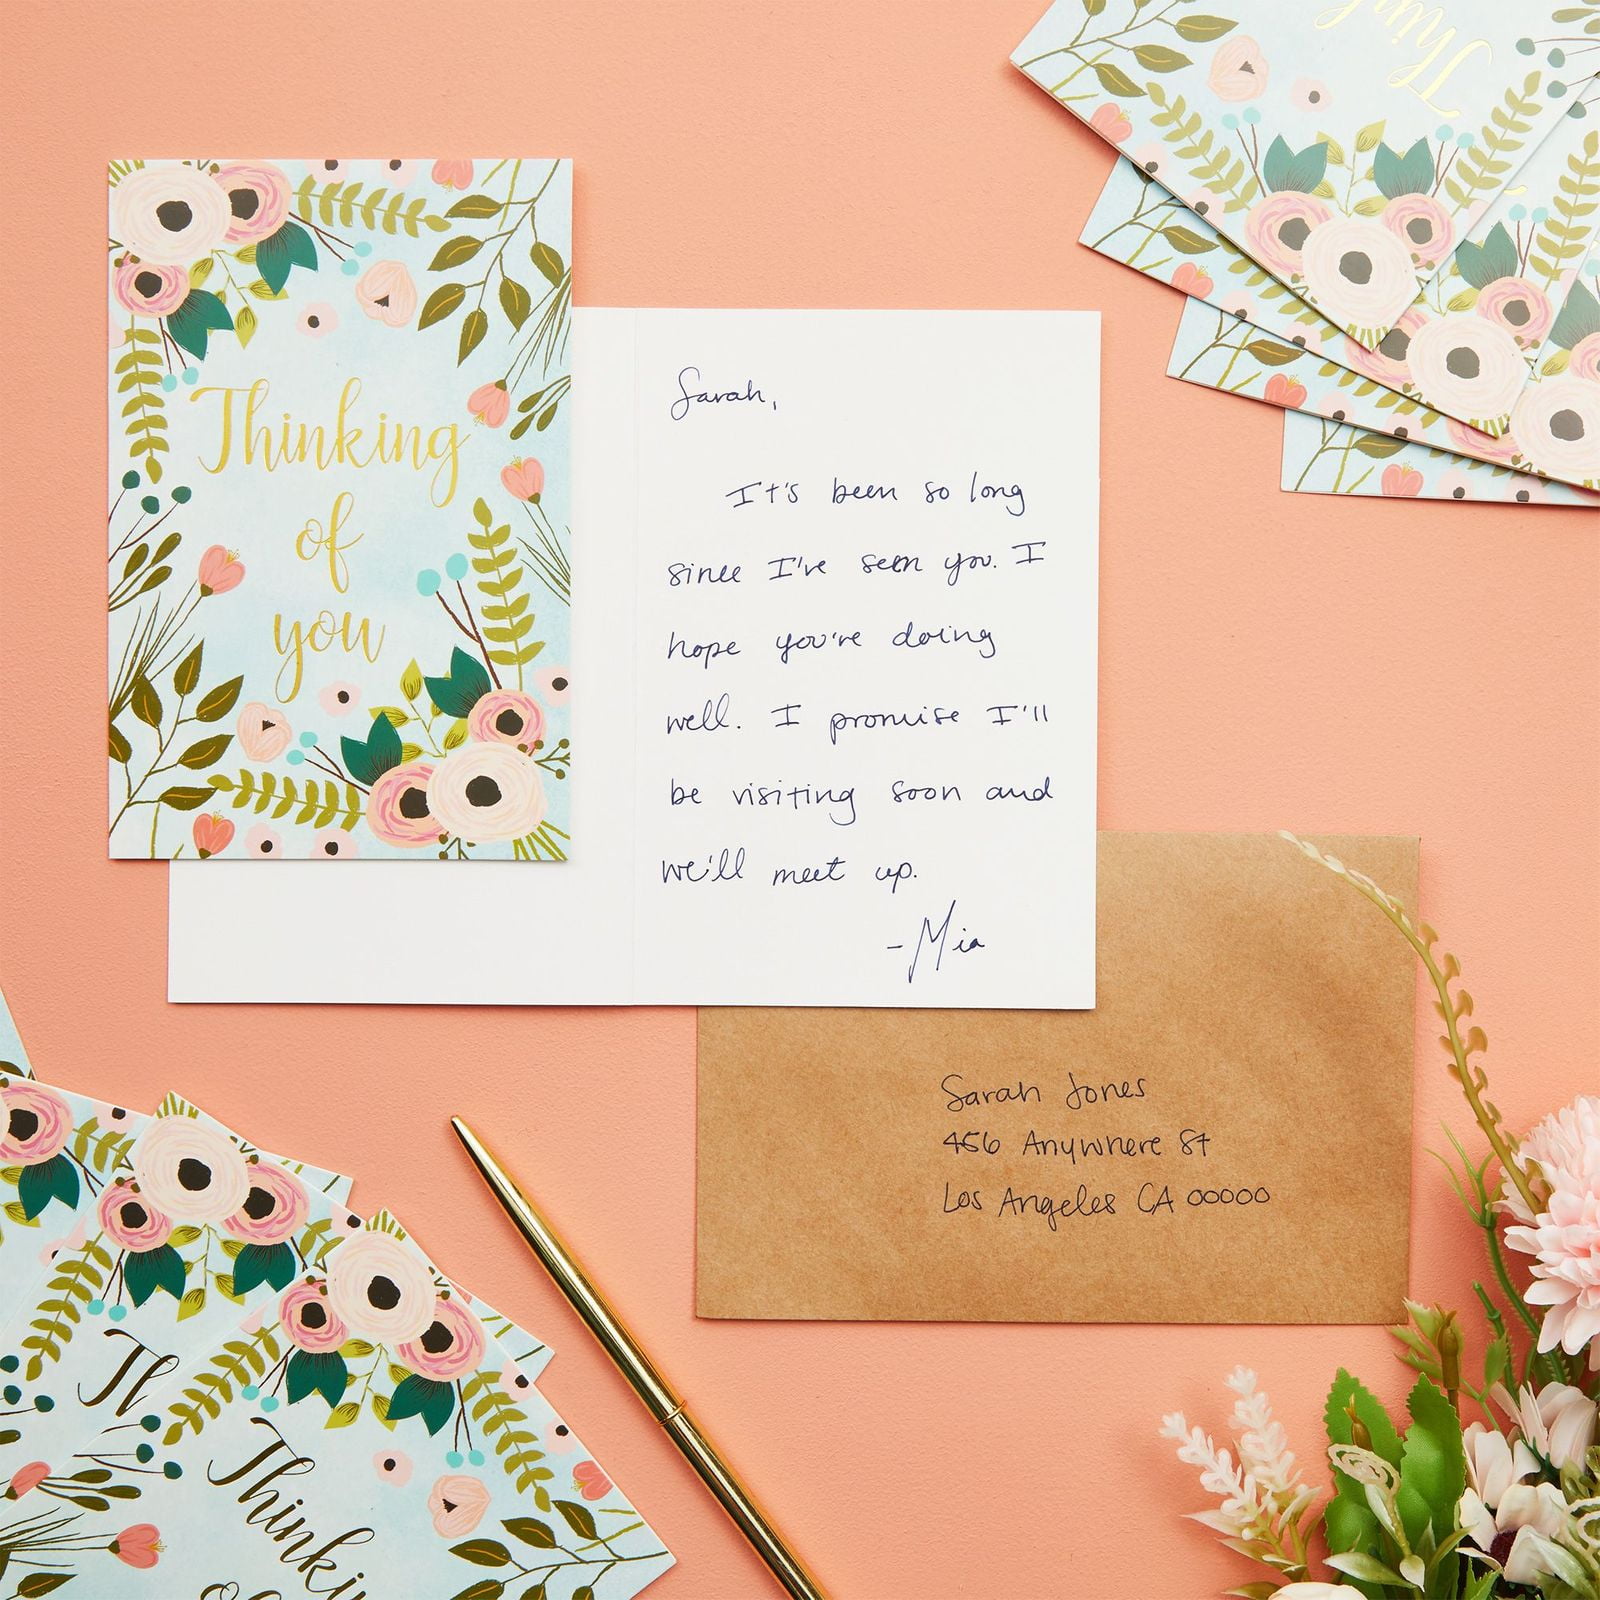 Thinking
of
you
Sarah,
It's been so long
since I've seen you. I
hope you're doing
well. I promise I'll
be visiting soon and
we'll meet up.
- Mia
Sarah Jones
456 Anywhere St
Los Angeles CA 00000
Thin
Th
Thinki
of